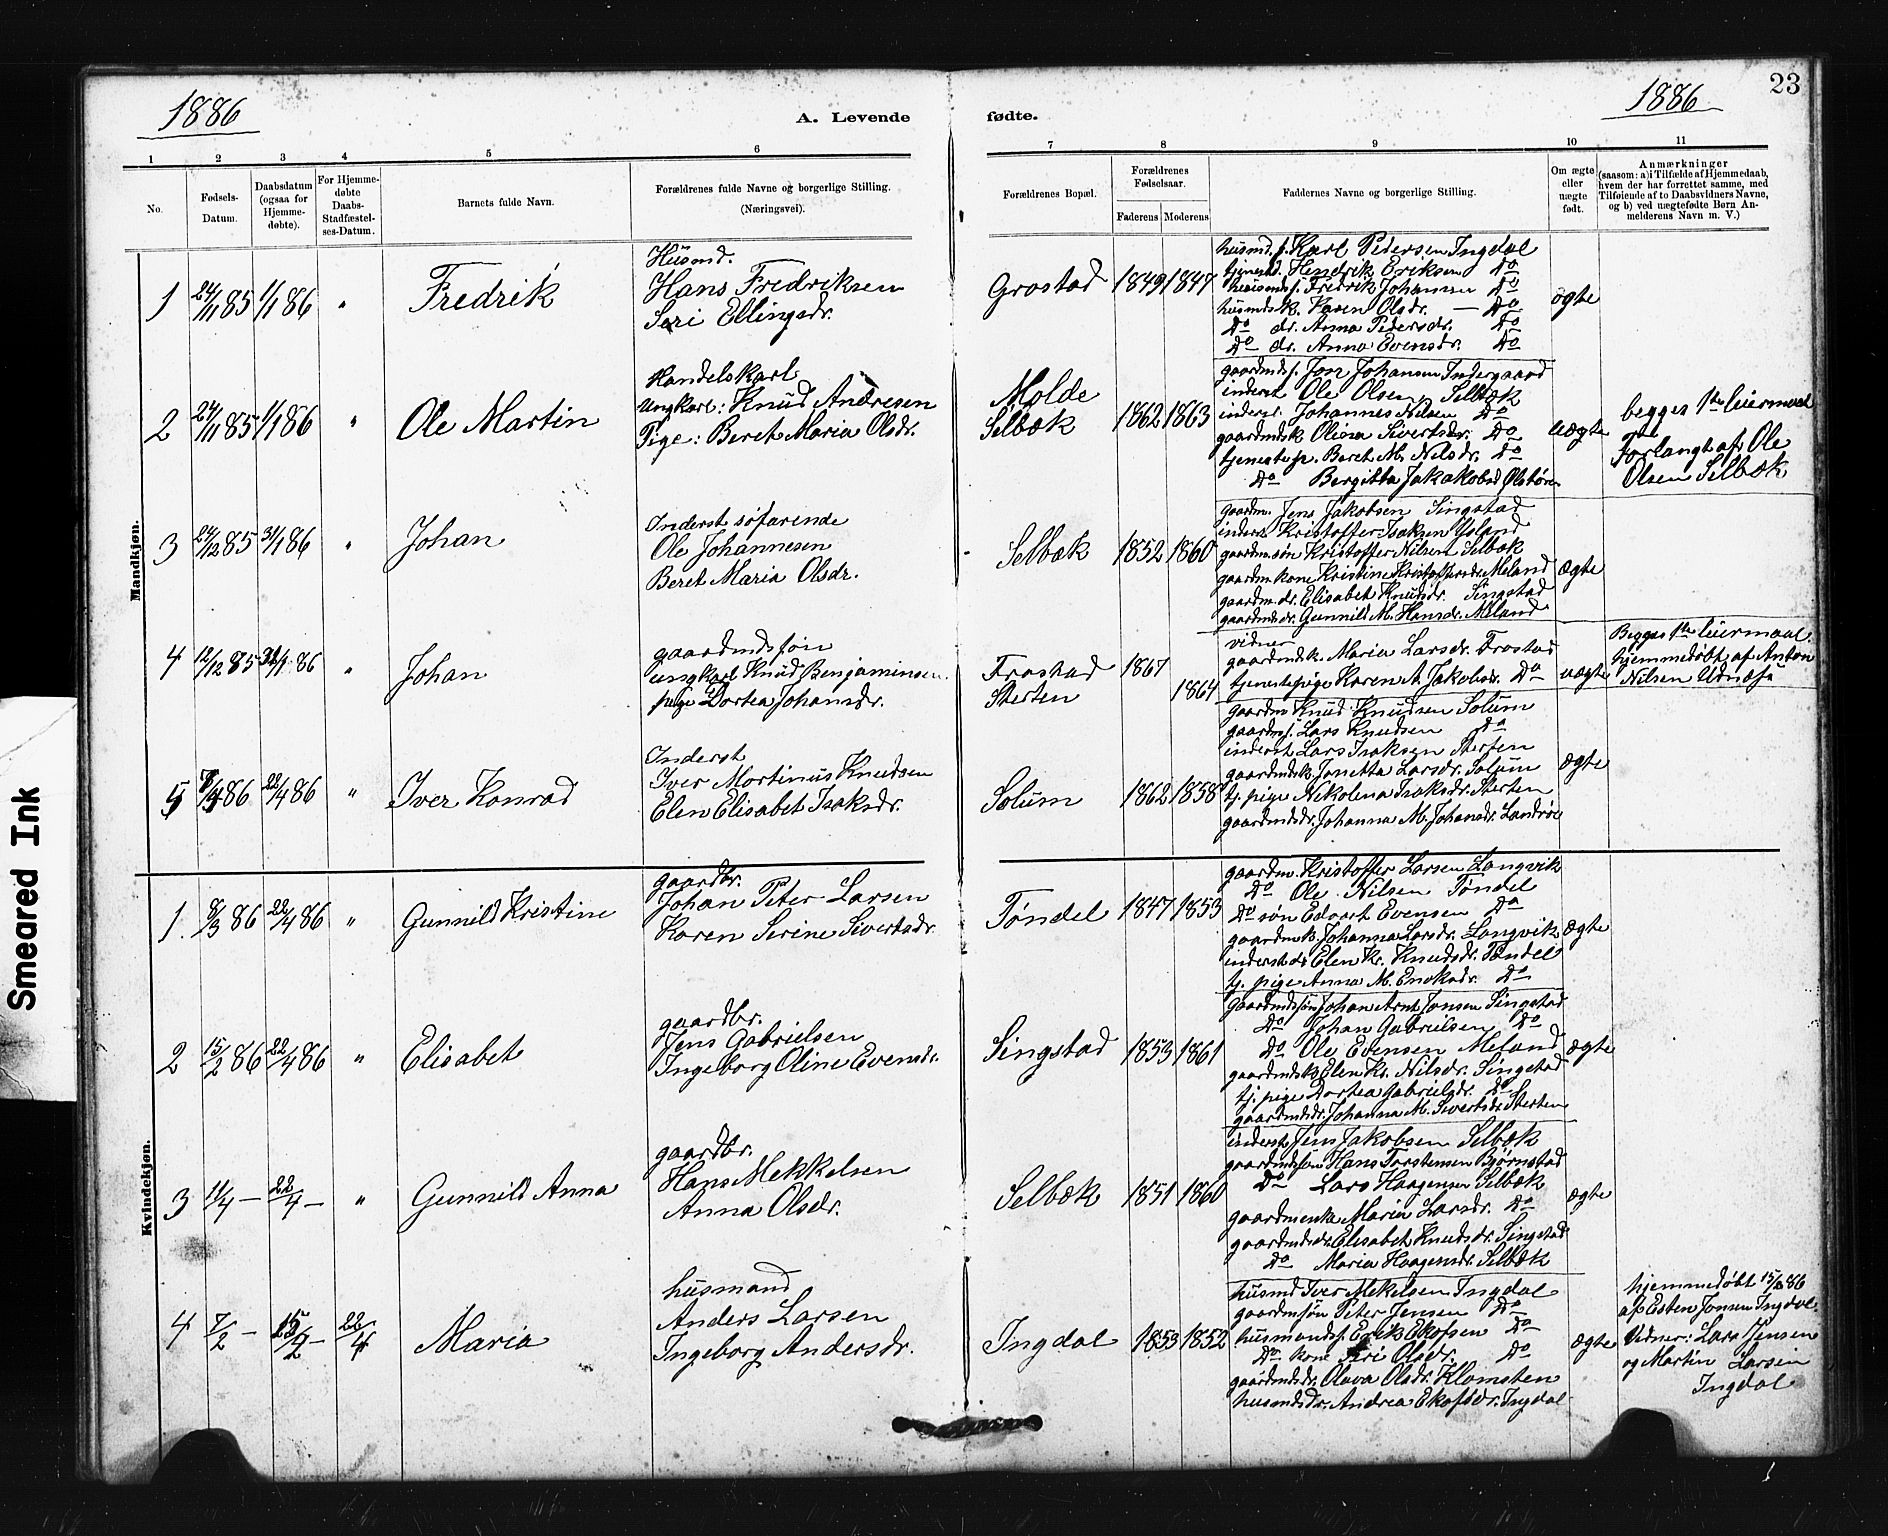 23
1886
1886
A. Levende
fødte.
1 2 3 4 5 6 7 8 9 10 11
No.
Fødsels-
Datum.
Daabsdatum
(ogsaa for
Hjemme-
døbte).
For Hjemme-
døbte
Daabs-
Stadfæstel-
ses-Datum.
Barnets fulde Navn.
Forældrenes fulde Navne og borgerlige Stilling.
(Næringsvei).
Forældrenes Bopæl.
Forældrenes
Fødselsaar.
Faderens Moderens
Faddernes Navne og borgerlige Stilling.
Om ægte
eller
uægte
født.
Anmærkninger
(saasom: a) i Tilfælde af Hjemmedaab,
hvem der har forrettet samme, med
Tilføiende af to Daabsvidners Navne,
og b) ved uægtefødte Børn An-
melderens Navn m. V.)
Mandkjøn.
1 24/11 85 1/1 86 " Fredrik
Husmd.
Hans Fredriksen
Seri Ellingsdr.
Grostad 1849 1847
husmd.s. Karl Pedersen Ingdal
tjenestd. Hendrik Eriksen Do
husmds. Fredrik Johansen Do
husmdsk. Karen Olsdr. — Do
Do dr. Anna Pedersdr. Do
Do dr. Anna Evensdr. Do
ægte
2 24/11 85 1/1 86 " Ole Martin
Handelskarl
Ungkarl: Knud Andresen
Pige: Beret Maria Olsdr.
Molde
Selbæk 1862 1863
gaardmds. Jon Johansen Indergaard
inderst Ole Olsen Selbæk
inderst Johannes Nilsen Do
gaardmdsk Olina Sivertsdr. Do
tjenestep. Beret M. Nilsdr. Do
Do Bergitta Jakobsd
uægte
begges 1ste leiermaal
Forlangt af Ole
Olsen Selbæk
3 24/12 85 31/1 86 " Johan
Inderst søfarende
Ole Johannesen
Beret Maria Olsdr.
Selbæk 1852 1860
gaardm. Jens Jakobsen Singstad
inderst Kristoffer Isaksen
gaardm.søn Kristoffer Nilsen Selbæk
gaardm. kone Kristine Kristoffersdr. Meland
gaardm. dr. Elisabet Knudsdr. Singstad
gaardmds dr. Gunnild M. Hansdr. Meland
ægte
4 12/12 85 31/1 86 " Johan
gaardmdsøn
ungkarl Knud Benjaminsen
pige Dortea Johansdr.
Frostad 1867
Sterten 1864
vidner
gaardmdsk. Maria Larsdr. Frostad
tjenestepige Karen A. Jakobsdr. Do
uægte
Begges 1ste leiermaal
hjemmedøbt af Anton
Nilsen
5 86 22/4 86 " Iver Konrad
Inderst
Iver Martinus Knudsen
Elen Elisabet Isaksdr.
Solum 1862 1858
gaardm Knud Knudsen Solum
gaardms. Lars Knudsen Do
inderst Lars Isaksen Sterten
gaardmdsk. Jonetta Larsdr. Solum
tj. pige Nikolena Isaksdr. Sterten
gaardmdsdr. Johanna M. Johansdr.
ægte
Kvindekjøn.
1. 8/3 86 22/4 86 " Gunnild Kristine
gaardbr.
Johan Peter Larsen
Karen Serine Sivertsdr.
Tøndel 1847 1853
gaardm. Kristoffer Larsen Langvik
Do Ole Nilsen Tøndel
Do søn Edvart Evensen Do
gaardm.k. Johanna Larsdr. Langvik
inderst dr Elen Kr. Knudsdr. Tøndel
tj. pige Anna M. Enoksdr. Do
ægte
2 15/2 86 22/4 86 " Elisabet
gaardbr.
Jens Gabrielsen
Ingeborg Oline Evensdr.
Singstad 1853 1861
gaardmdssøn Johan Arnt Jonsen Singstad
Do Johan Gabrielsen Do
Do Ole Evensen Meland
gaardmdsk Elen Kr. Nilsdr. Singstad
tj. pige Dortea Gabrielsdr. Do
gaardmdsdr. Johanna M. Sivertsdr Sterten
ægte
3 11/4 — 22/4 — " Gunnild Anna
gaardbr.
Hans Mekkelsen
Anna Olsdr.
Selbæk 1851 1860
inderst Jens Jakobsen Selbæk
gaardmdsøn Hans Torstensen Bjørnstad
Do Lars Haagensen Selbæk
gaardmenka Maria Larsdr. Do
gaardmdsdr. Elisabet Knudsdr. Singstad
Do Maria Haagensdr. Selbæk
ægte
4 7/2 — 15/2 — 22/4 Maria
husmand
Anders Larsen
Ingeborg Andersdr.
Ingdal 1853 1852
husmd Iver Mekelsen Ingdal
gaardmsøn Peter Jensen Do
husmands. Erik Ekofsen Do
Do kone Seri Olsdr. Do
gaardmdsdr. Olava Olsdr. Klamsten
husmdsdr. Andrea Ekofsdr. Ingdal
ægte
hjemmedøbt 15/2 86
af Esten Jonsen Ingdal.
Vidner: Lars Jensen
og Martin Larsen
Ingdal
Smeared Ink